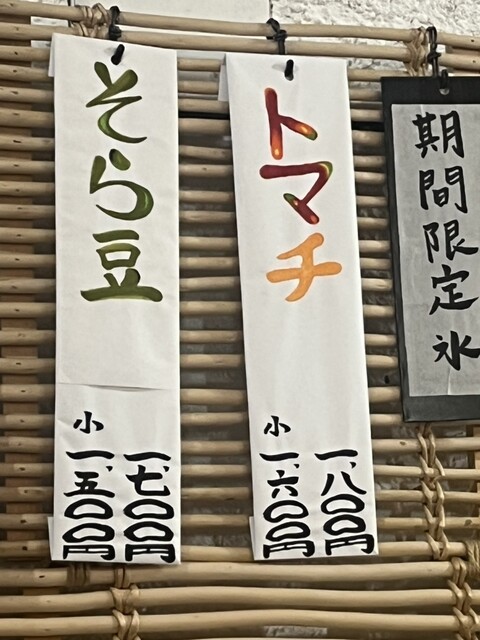 期間限定氷
トマチ
一、八〇〇円
小一、六〇〇円
そら豆
一、七〇〇円
小一、五〇〇円